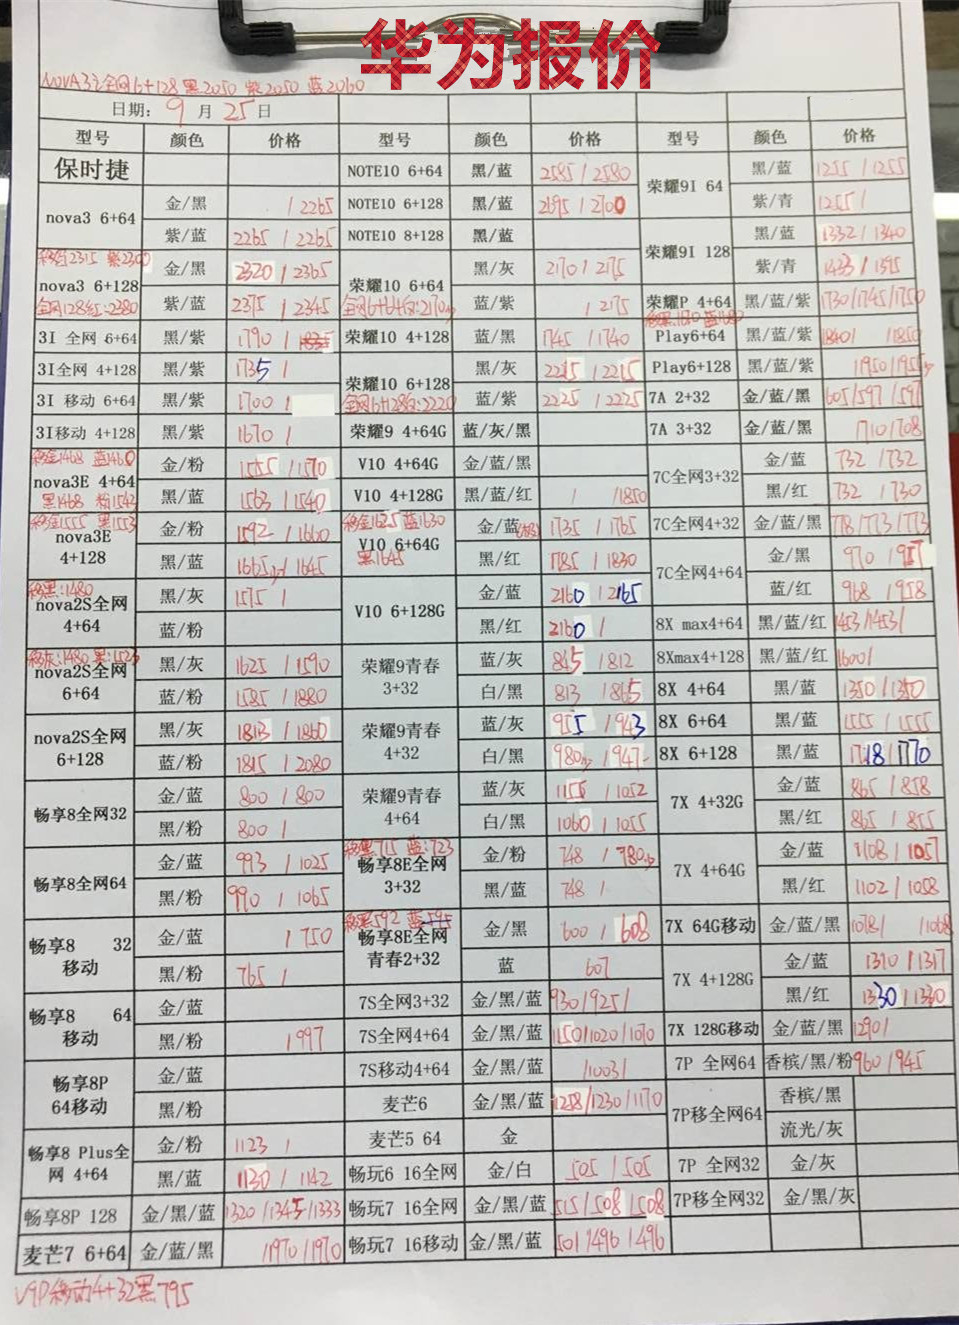 华为报价
NOVA3i全网6+128 黑2050 紫2050 蓝2060
日期: 9 月 25 日
型号 颜色 价格 型号 颜色 价格 型号 颜色 价格
保时捷
nova3 6+64 金/黑 / 2265
紫/蓝 2265 / 2265
移铂2315 紫2300
nova3 6+128 金/黑 2320 / 2365
全网128红:2380 紫/蓝 2375 / 2345
3I 全网 6+64 黑/紫 1790 /
3I全网 4+128 黑/紫 1735 /
3I 移动 6+64 黑/紫 1700 /
3I移动 4+128 黑/紫 1670 /
移金1468 蓝1460
nova3E 4+64 金/粉 1555 / 1570
黑1468 粉1543 黑/蓝 1563 / 1540
移金1555 黑1553
nova3E 4+128 金/粉 1592 / 1660
黑/蓝 1665 / 1645
移黑:1480
nova2S全网 4+64 黑/灰 1575 /
蓝/粉
移灰:1480 黑:1523
nova2S全网 6+64 黑/灰 1625 / 1590
蓝/粉 1585 / 1880
nova2S全网 6+128 黑/灰 1813 / 1860
蓝/粉 1815 / 2080
畅享8全网32 金/蓝 800 / 800
黑/粉 800 /
畅享8全网64 金/蓝 993 / 1025
黑/粉 990 / 1065
畅享8 32 移动 金/蓝 / 750
黑/粉 765 /
畅享8 64 移动 金/蓝
黑/粉 / 997
畅享8P 64移动 金/蓝
黑/粉
畅享8 Plus全网 4+64 金/粉 1123 /
黑/蓝 1130 / 1142
畅享8P 128 金/黑/蓝 1320 / 1345 / 1333
麦芒7 6+64 金/蓝/黑 / 1970 / 1970
V9P移动4+32黑795
NOTE10 6+64 黑/蓝 2585 / 2580
NOTE10 6+128 黑/蓝 2695 / 2700
NOTE10 8+128 黑/蓝
荣耀10 6+64 黑/灰 2170 / 2175
全网6+64白:2170 蓝/紫 / 2175
荣耀10 4+128 蓝/黑 1745 / 1740
荣耀10 6+128 黑/灰 2215 / 2215
全网6+128白:2220 蓝/紫 2225 / 2225
荣耀9 4+64G 蓝/灰/黑
V10 4+64G 金/蓝/黑
V10 4+128G 黑/蓝/红 / / 1850
移金1625 蓝1630
V10 6+64G 金/蓝 1735 / 1765
黑1645 黑/红 1785 / 1830
V10 6+128G 金/蓝 2160 / 2165
黑/红 2160 /
荣耀9青春 3+32 蓝/灰 845 / 812
白/黑 813 / 865
荣耀9青春 4+32 蓝/灰 955 / 943
白/黑 980 / 947
荣耀9青春 4+64 蓝/灰 1155 / 1052
白/黑 1060 / 1055
移黑715 蓝:723
畅享8E全网 3+32 金/粉 748 / 780
黑/蓝 748 /
移黑592 蓝595
畅享8E全网 青春2+32 金/黑 600 / 608
蓝 607
7S全网3+32 金/黑/蓝 930 / 925 /
7S全网4+64 金/黑/蓝 1150 / 1020 / 1070
7S移动4+64 金/黑/蓝 / 1003 /
麦芒6 金/黑/蓝 1258 / 1230 / 1170
麦芒5 64 金
畅玩6 16全网 金/白 505 / 505
畅玩7 16全网 金/黑/蓝 515 / 508 / 508
畅玩7 16移动 金/黑/蓝 501 / 496 / 496
荣耀9I 64 黑/蓝 1255 / 1255
紫/青 1255 /
荣耀9I 128 黑/蓝 1332 / 1340
紫/青 1433 / 1395
荣耀P 4+64 黑/蓝/紫 1730 / 1745 / 1750
Play6+64 黑/蓝/紫 1840 / / 1850
Play6+128 黑/蓝/紫 / 1950 / 1955
7A 2+32 金/蓝/黑 605 / 597 / 597
7A 3+32 金/蓝/黑 / 710 / 708
7C全网3+32 金/蓝 732 / 732
黑/红 732 / 730
7C全网4+32 金/蓝/黑 778 / 773 / 773
7C全网4+64 金/黑 970 / 957
蓝/红 968 / 958
8X max4+64 黑/蓝/红 1453 / 1453 /
8Xmax4+128 黑/蓝/红 1600 /
8X 4+64 黑/蓝 1350 / 1350
8X 6+64 黑/蓝 1555 / 1555
8X 6+128 黑/蓝 1718 / 1770
7X 4+32G 金/蓝 865 / 858
黑/红 865 / 855
7X 4+64G 金/蓝 1108 / 1057
黑/红 1102 / 1058
7X 64G移动 金/蓝/黑 1078 / / 1068
7X 4+128G 金/蓝 1310 / 1317
黑/红 1330 / 1330
7X 128G移动 金/蓝/黑 1290 /
7P 全网64 香槟/黑/粉 960 / 945
7P移全网64 香槟/黑
流光/灰
7P 全网32 金/灰
7P移全网32 金/黑/灰